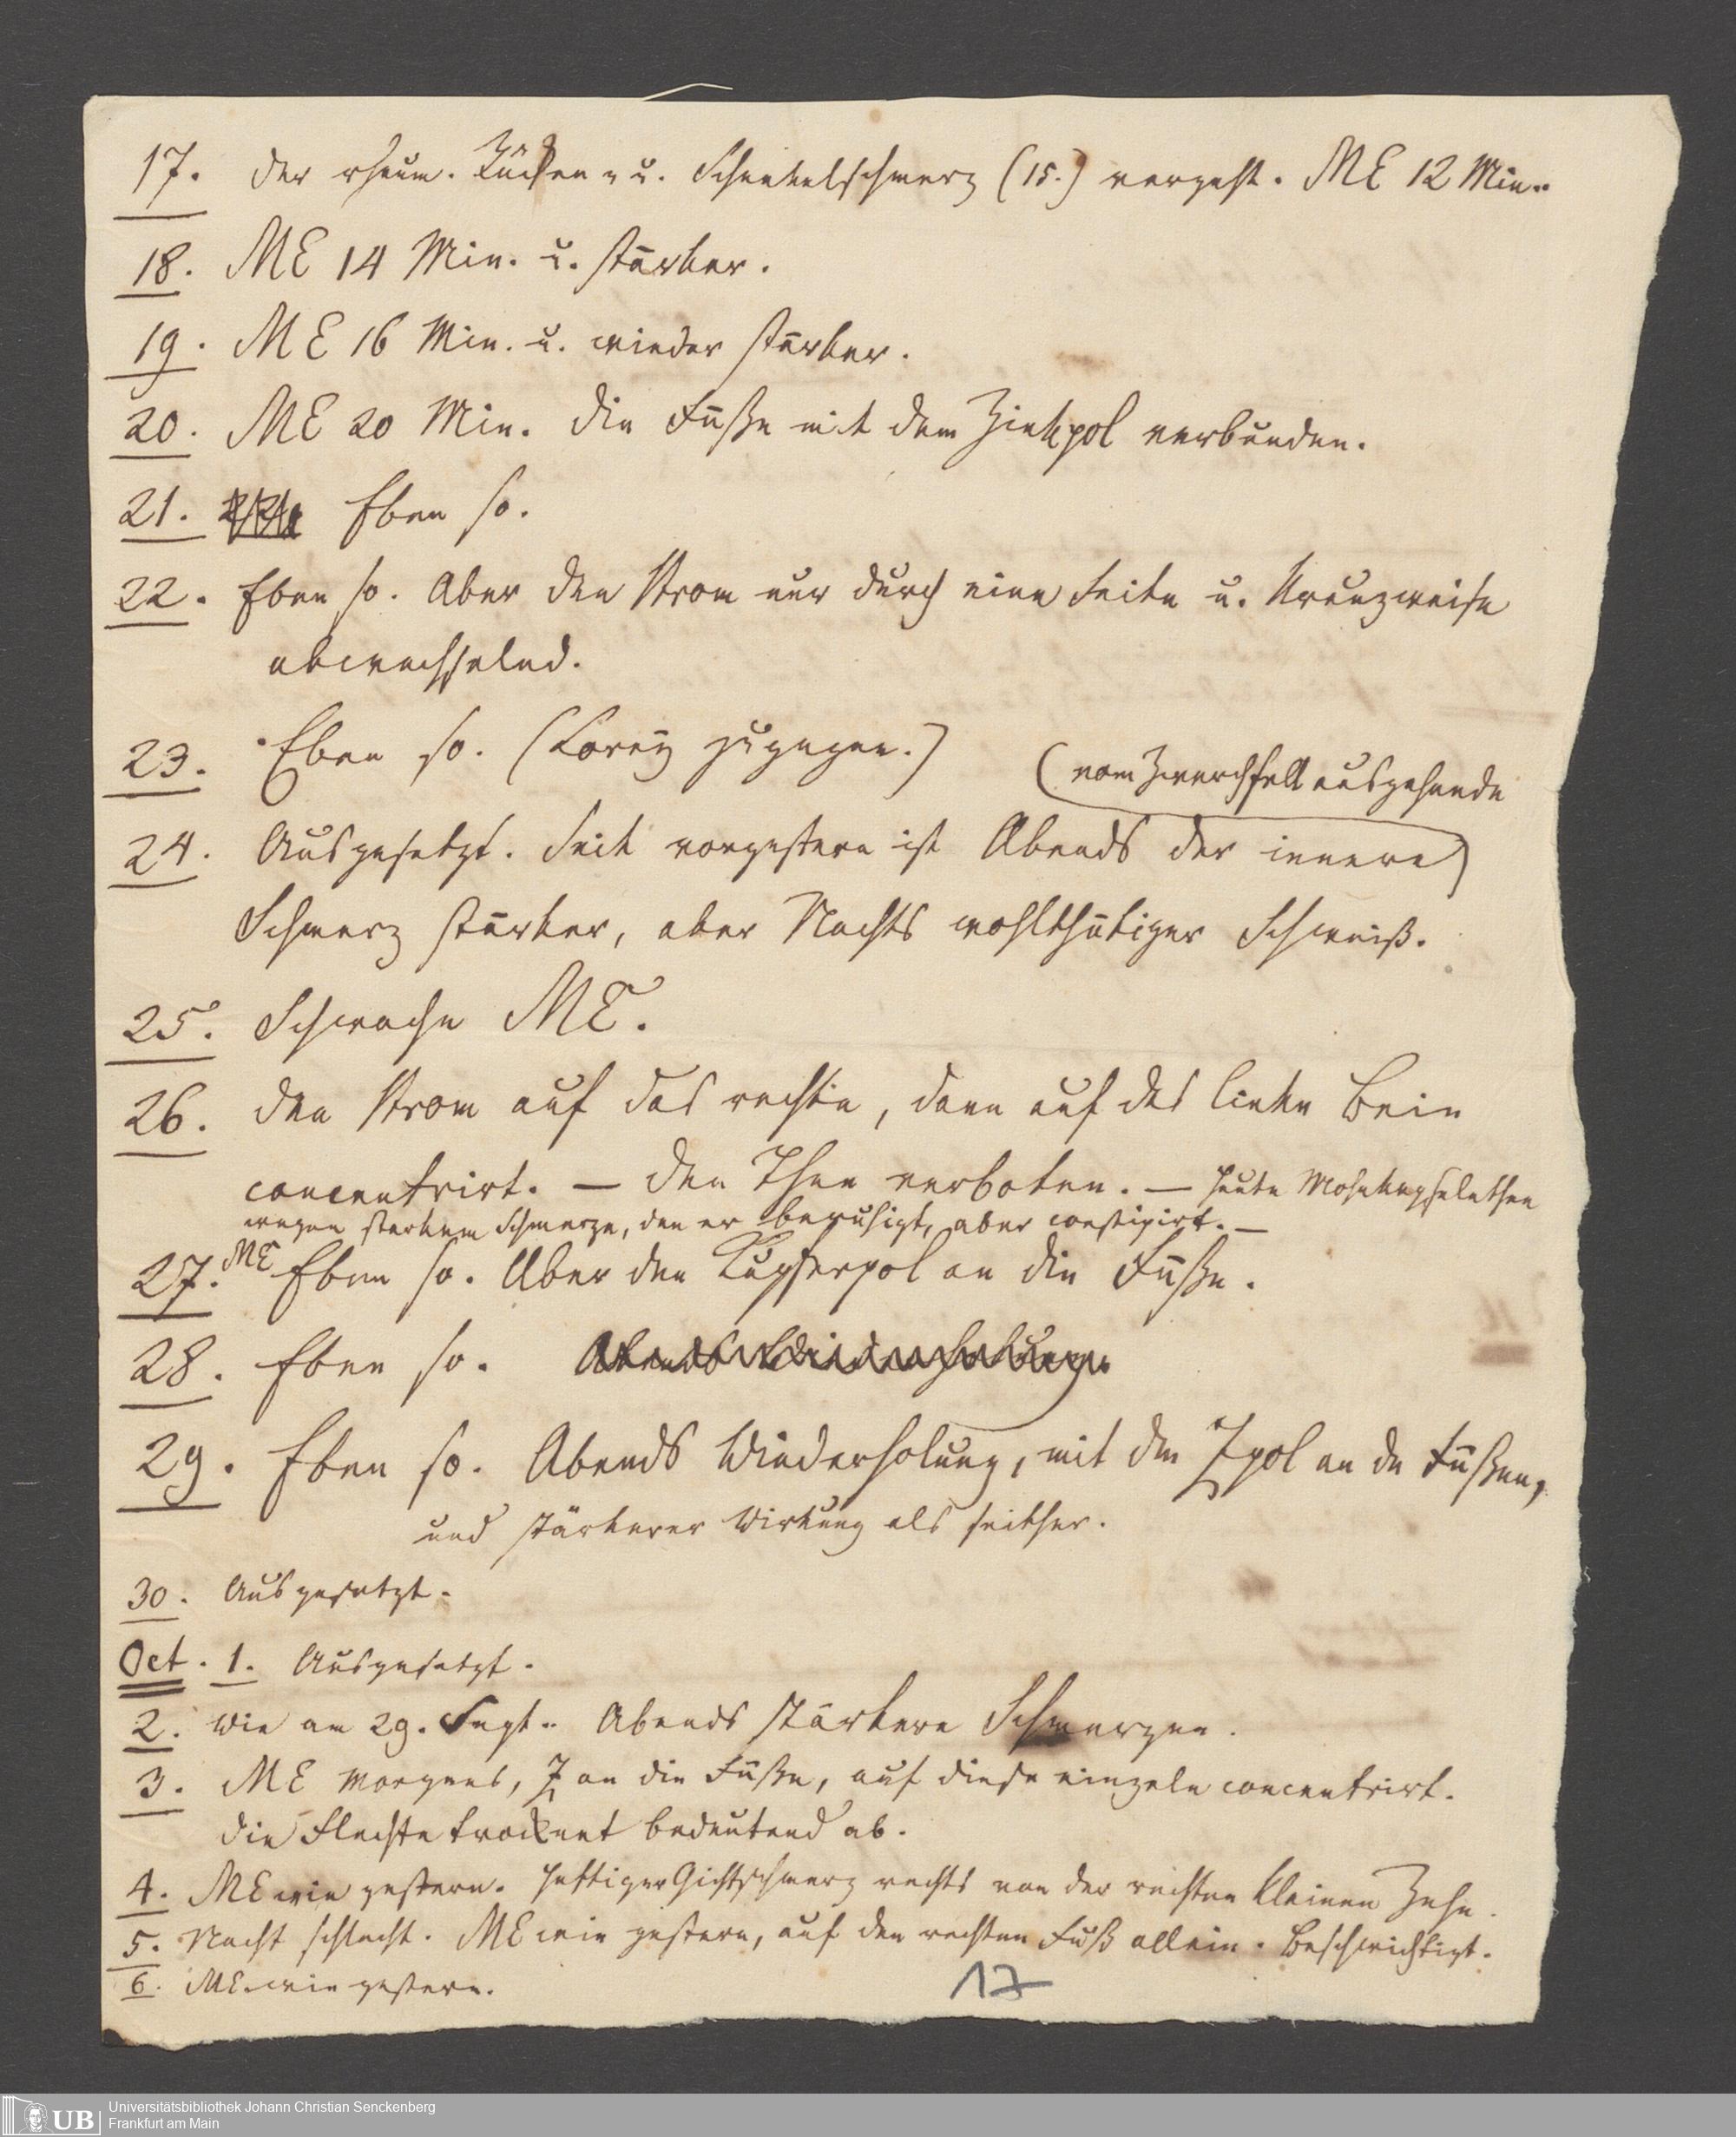 17. Der rheum. Rücken- u. Schenkelschmerz (15.) vergeht. ME 12 Min.
18. ME 14 Min. u. stärker.
19. ME 16 Min. u. wieder stärker.
20. ME 20 Min. Die Füße mit dem Zinkpol verbunden.
21. Eben so.
22. Eben so. Aber den Strom nur durch eine Seite u. Kreuzweise
abwechselnd.
23. Eben so. (Lorey zugegen.)
(vom Zwerchfell ausgehende)
24. Ausgesetzt. Seit vorgestern ist Abends der innere
Schmerz stärker, aber Nachts wohlthätiger Schweiß.
25. Schwache ME.
26. Den Strom auf das rechte, dann auf das linke Bein
concentrirt. — Den Thee verboten. — Heute Mohnkapselnthee
wegen starkem Schmerze, den er beruhigt, aber constipirt. —
27. ME Eben so. Aber den Kupferpol an die Füße.
28. Eben so. Abends Wiederholung.
29. Eben so. Abends Wiederholung, mit dem Zpol an den Füßen,
und stärkerer Wirkung als seither.
30. Ausgesetzt.
Oct. 1. Ausgesetzt.
2. Wie am 29. Sept. Abends stärkere Schmerzen.
3. ME Morgens, Z an die Füße, auf diese einzeln concentrirt.
Die Flechte trocknet bedeutend ab.
4. ME wie gestern. Heftiger Gichtschmerz rechts von der rechten kleinen Zehe.
5. Nacht schlecht. ME wie gestern, auf den rechten Fuß allein. Beschwichtigt.
6. ME wie gestern.
17
UB
Universitätsbibliothek Johann Christian Senckenberg
Frankfurt am Main